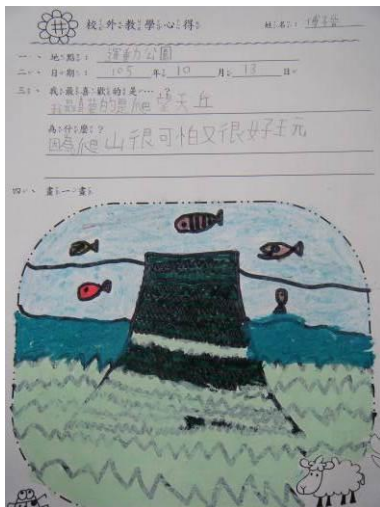 校外教學心得 姓名：
一、地點：運動公園
二、日期：105年10月13日
三、我最喜歡的是…
我最喜歡的是爬望天丘
為什麼？
因為爬山很可怕又很好玩
四、畫一畫